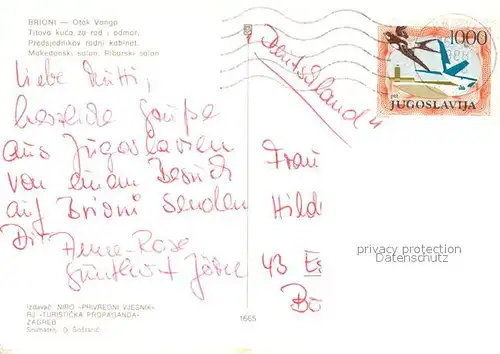 BRIONI — Otok Vanga
Titova kuća za rad i odmor.
Predsjednikov radni kabinet.
Makedonski salon. Ribarski salon
1000
JUGOSLAVIJA
Deutschland
Liebe Mutti,
herzliche Grüße
aus Jugoslavien
von einem Besuch
auf Brioni senden
Dir Anne-Rose
Günther + Jörn
Frau
Hild
43 Es
privacy protection
Datenschutz
Izdavač: NIRO »PRIVREDNI VJESNIK«
RJ »TURISTIČKA PROPAGANDA«
ZAGREB
Snimatelj:
1665